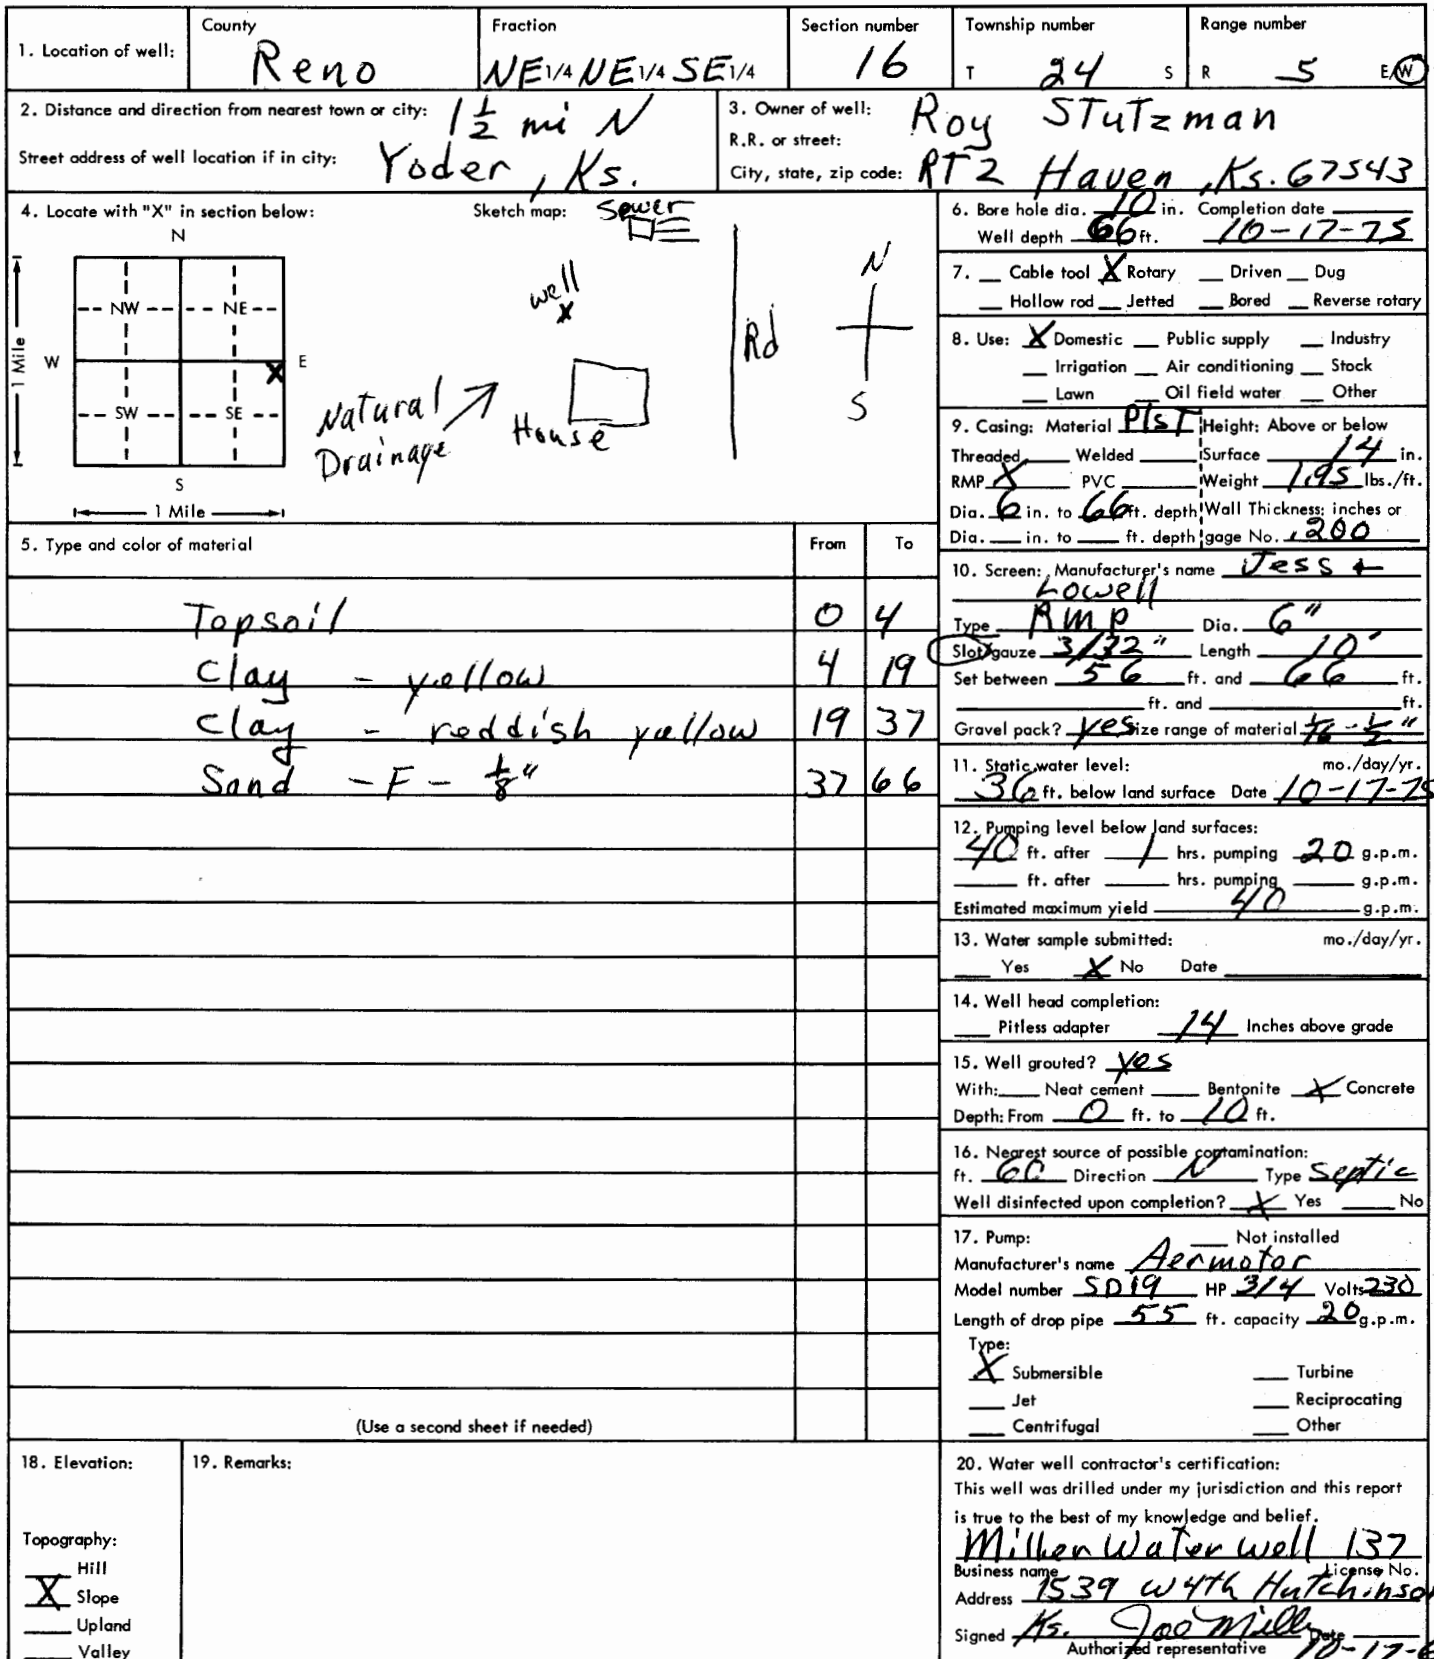 1. Location of well: County Reno Fraction NE1/4 NE1/4 SE1/4 Section number 16 Township number T 24 S Range number R 5 E/W
2. Distance and direction from nearest town or city: 1 1/2 mi N
Street address of well location if in city: Yoder, Ks.
3. Owner of well: Roy Stutzman
R.R. or street:
City, state, zip code: RT2 Haven, Ks. 67543
4. Locate with "X" in section below:
N
NW NE
W E
X
SW SE
S
1 Mile
1 Mile
Sketch map: Sewer
well
x
Rd
N
S
Natural
Drainage
House
5. Type and color of material From To
Topsoil 0 4
Clay - yellow 4 19
Clay - reddish yellow 19 37
Sand - F - 1/8" 37 66
(Use a second sheet if needed)
6. Bore hole dia. 10 in. Completion date
Well depth 66 ft. 10-17-75
7. __ Cable tool X Rotary __ Driven __ Dug
__ Hollow rod __ Jetted __ Bored __ Reverse rotary
8. Use: X Domestic __ Public supply __ Industry
__ Irrigation __ Air conditioning __ Stock
__ Lawn __ Oil field water __ Other
9. Casing: Material Plst Height: Above or below
Threaded __ Welded __ Surface 14 in.
RMP X PVC __ Weight 1.95 lbs./ft.
Dia. 6 in. to 66 ft. depth Wall Thickness: inches or
Dia. __ in. to __ ft. depth gage No. .200
10. Screen: Manufacturer's name Jess +
Lowell
Type RMP Dia. 6"
Slot/gauze 3/32" Length 10'
Set between 56 ft. and 66 ft.
__ ft. and __ ft.
Gravel pack? yes Size range of material 1/16 - 1/2"
11. Static water level: mo./day/yr.
36 ft. below land surface Date 10-17-75
12. Pumping level below land surfaces:
40 ft. after 1 hrs. pumping 20 g.p.m.
__ ft. after __ hrs. pumping __ g.p.m.
Estimated maximum yield 40 g.p.m.
13. Water sample submitted: mo./day/yr.
__ Yes X No Date __
14. Well head completion:
__ Pitless adapter 14 Inches above grade
15. Well grouted? yes
With: __ Neat cement __ Bentonite X Concrete
Depth: From 0 ft. to 10 ft.
16. Nearest source of possible contamination:
ft. 60 Direction N Type Septic
Well disinfected upon completion? X Yes __ No
17. Pump: __ Not installed
Manufacturer's name Aermotor
Model number SD19 HP 3/4 Volts 230
Length of drop pipe 55 ft. capacity 20 g.p.m.
Type:
X Submersible __ Turbine
__ Jet __ Reciprocating
__ Centrifugal __ Other
18. Elevation:
Topography:
__ Hill
X Slope
__ Upland
__ Valley
19. Remarks:
20. Water well contractor's certification:
This well was drilled under my jurisdiction and this report
is true to the best of my knowledge and belief.
Miller Water well 137
Business name License No.
Address 1539 W 4th Hutchinson
Signed Ks. Joe Miller Date
Authorized representative